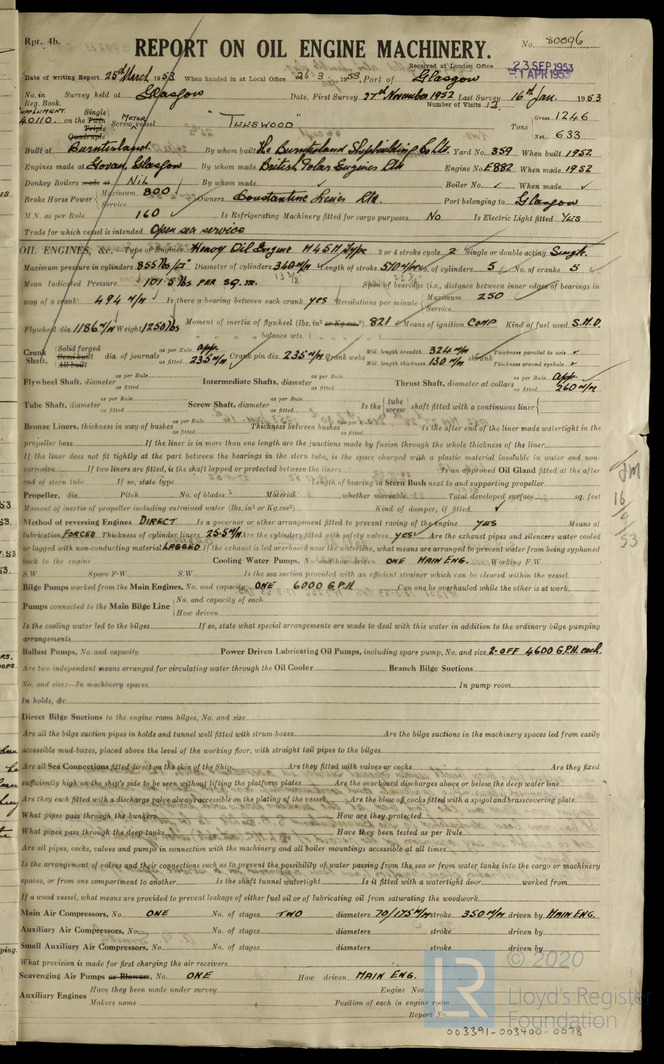 Rpt. 4b.
REPORT ON OIL ENGINE MACHINERY.
No. 80096
Received at London Office 23 SEP 1953
1 APR 1953
Date of writing Report 25th March 1953 When handed in at Local Office 26.3.1953 Port of Glasgow
No. in Reg. Book. Survey held at Glasgow Date, First Survey 27th November 1952 Last Survey 16th Jan. 1953
Number of Visits 12
SUPPLEMENT. 40110. on the Single Twin Triple Quadruple MOTOR Screw vessel "INGSWOOD" Tons Gross 1246 Net 633
Built at Burntisland By whom built The Burntisland Shipbuilding Co Ltd Yard No. 359 When built 1952
Engines made at Govan, Glasgow By whom made British Polar Engines Ltd Engine No. E882 When made 1952
Donkey Boilers made at Nil By whom made Boiler No. When made
Brake Horse Power Maximum 800 Service Owners Constantine Lines Ltd. Port belonging to Glasgow
M.N. as per Rule 160 Is Refrigerating Machinery fitted for cargo purposes No Is Electric Light fitted Yes
Trade for which vessel is intended Open sea service
OIL ENGINES, &c. Type of Engines Heavy Oil Engine M45M Type 2 or 4 stroke cycle 2 Single or double acting Single
Maximum pressure in cylinders 855 lbs/□" Diameter of cylinders 340 m/m Length of stroke 570 m/m No. of cylinders 5 No. of cranks 5
Mean Indicated Pressure 101.5 lbs PER SQ. IN. 13 3/8" Span of bearings (i.e., distance between inner edges of bearings in
way of a crank) 494 m/m Is there a bearing between each crank YES Revolutions per minute Maximum 250 Service
Flywheel dia. 1186 m/m Weight 1250 lbs Moment of inertia of flywheel (lbs. in² or Kg.cm²) 821 Means of ignition COMP Kind of fuel used S.M.D.
" " " balance wts. ( " " " )
Crank Shaft, Solid forged Semi built All built dia. of journals as per Rule app. as fitted 235 m/m Crank pin dia. 235 m/m Crank webs Mid. length breadth 324 m/m Mid. length thickness 130 m/m shrunk Thickness parallel to axis Thickness around eyehole
Flywheel Shaft, diameter as per Rule as fitted Intermediate Shafts, diameter as per Rule as fitted Thrust Shaft, diameter at collars as per Rule app. as fitted 260 m/m
Tube Shaft, diameter as per Rule as fitted Screw Shaft, diameter as per Rule as fitted Is the { tube screw } shaft fitted with a continuous liner {
Bronze Liners, thickness in way of bushes as per Rule as fitted Thickness between bushes as per Rule as fitted Is the after end of the liner made watertight in the
propeller boss If the liner is in more than one length are the junctions made by fusion through the whole thickness of the liner
If the liner does not fit tightly at the part between the bearings in the stern tube, is the space charged with a plastic material insoluble in water and non-
corrosive If two liners are fitted, is the shaft lapped or protected between the liners Is an approved Oil Gland fitted at the after
end of stern tube If so, state type Length of bearing in Stern Bush next to and supporting propeller
Propeller, dia. Pitch No. of blades Material whether moveable Total developed surface sq. feet
Moment of inertia of propeller including entrained water (lbs. in² or Kg.cm²) Kind of damper, if fitted
Method of reversing Engines DIRECT Is a governor or other arrangement fitted to prevent racing of the engine YES Means of
lubrication FORCED Thickness of cylinder liners 25.5 m/m Are the cylinders fitted with safety valves YES Are the exhaust pipes and silencers water cooled
or lagged with non-conducting material LAGGED If the exhaust is led overboard near the waterline, what means are arranged to prevent water from being syphoned
back to the engine Cooling Water Pumps, No. and how driven ONE MAIN ENG. Working F.W.
S.W. Spare F.W. S.W. Is the sea suction provided with an efficient strainer which can be cleared within the vessel
Bilge Pumps worked from the Main Engines, No. and capacity ONE 6000 G.P.H Can one be overhauled while the other is at work
Pumps connected to the Main Bilge Line { No. and capacity of each
How driven
Is the cooling water led to the bilges If so, state what special arrangements are made to deal with this water in addition to the ordinary bilge pumping
arrangements
Ballast Pumps, No. and capacity Power Driven Lubricating Oil Pumps, including spare pump, No. and size 2-OFF 4600 G.P.H. each.
Are two independent means arranged for circulating water through the Oil Cooler Branch Bilge Suctions
No. and size:—In machinery spaces In pump room
In holds, &c.
Direct Bilge Suctions to the engine room bilges, No. and size
Are all the bilge suction pipes in holds and tunnel well fitted with strum-boxes Are the bilge suctions in the machinery spaces led from easily
accessible mud-boxes, placed above the level of the working floor, with straight tail pipes to the bilges
Are all Sea Connections fitted direct on the skin of the Ship Are they fitted with valves or cocks Are they fixed
sufficiently high on the ship's side to be seen without lifting the platform plates Are the overboard discharges above or below the deep water line
Are they each fitted with a discharge valve always accessible on the plating of the vessel Are the blow off cocks fitted with a spigot and brass covering plate
What pipes pass through the bunkers How are they protected
What pipes pass through the deep tanks Have they been tested as per Rule
Are all pipes, cocks, valves and pumps in connection with the machinery and all boiler mountings accessible at all times
Is the arrangement of valves and their connections such as to prevent the possibility of water passing from the sea or from water tanks into the cargo or machinery
spaces, or from one compartment to another Is the shaft tunnel watertight Is it fitted with a watertight door worked from
If a wood vessel, what means are provided to prevent leakage of either fuel oil or of lubricating oil from saturating the woodwork
Main Air Compressors, No. ONE No. of stages TWO diameters 70/175 m/m stroke 350 m/m driven by MAIN ENG.
Auxiliary Air Compressors, No. No. of stages diameters stroke driven by
Small Auxiliary Air Compressors, No. No. of stages diameters stroke driven by
What provision is made for first charging the air receivers
Scavenging Air Pumps or Blowers, No. ONE How driven MAIN ENG.
Auxiliary Engines Have they been made under survey Engine Nos.
Makers name Position of each in engine room
Report No.
JM
16/9/53
LR © 2020
Lloyd's Register
Foundation
003391-003400-0078